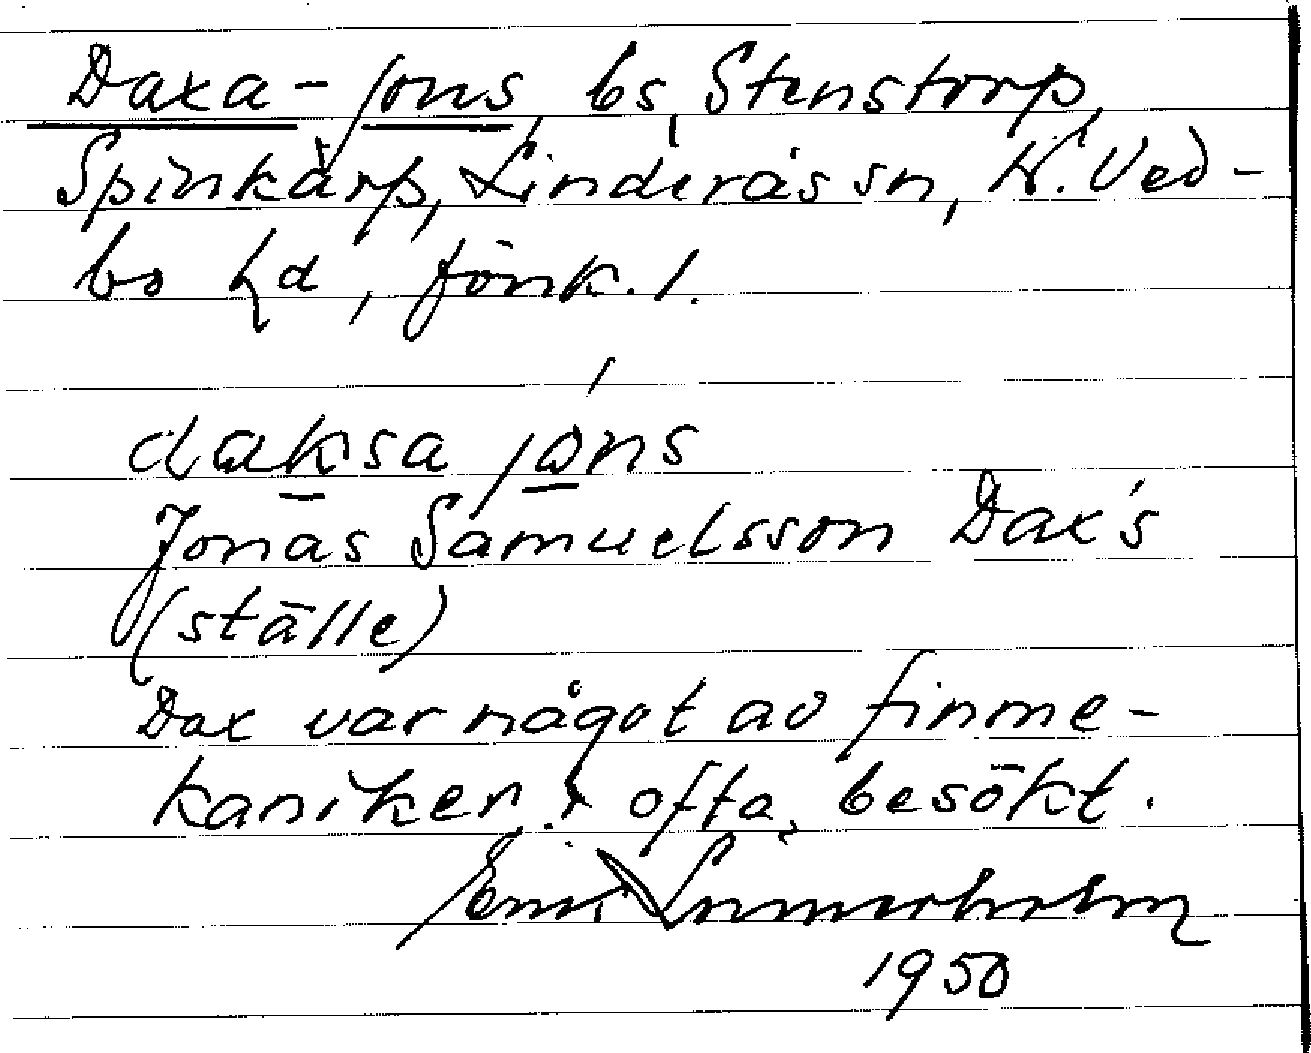 Daxa-Jons, bs, Stenstorp,
Spinkarp, Linderås sn, N. Ved-
bo hd, Jönk. l.
daksa jons
Jonas Samuelsson Dax's
(ställe)
Dax var något av finme-
kaniker. ofta besökt.
Emil
1950